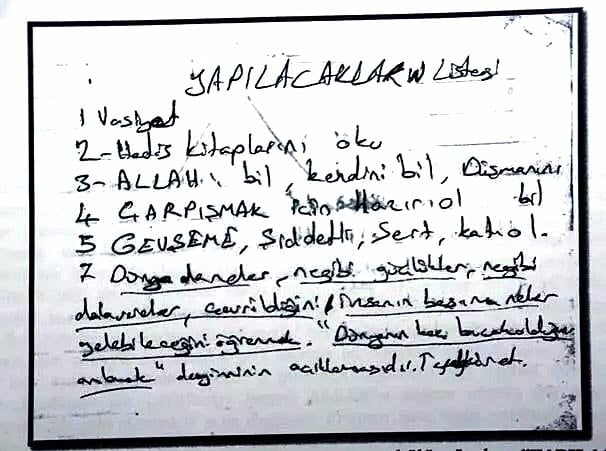 YAPILACAKLARIN Listesi
1 Vasiyet
2-Hadis kitaplarını oku
3- ALLAH'ı bil, kendini bil, Düşmanını bil
4 ÇARPIŞMAK için Hazır ol
5 GEVŞEME, Şiddetli, Sert, katı ol.
7 Dünyada neler, negibi güçlükler, negibi
dalavereler, çevrildiğini, insanın başına neler
gelebileceğini öğrenmek. "Dünyanın kaç bucak olduğunu
anlamak" deyiminin açıklamasıdır.